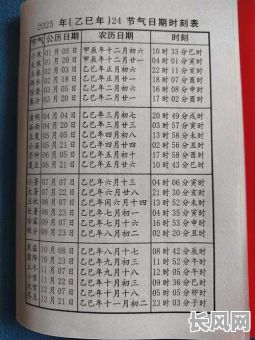 2025 年(乙巳年)24 节气日期时刻表
节气 公历日期 农历日期 时刻
小寒 01月05日 甲辰年十二月初六 10时33分巳时
01月20日 甲辰年十二月廿一 04时00分寅时
02月03日 乙巳年正月初六 22时10分亥时
02月18日 乙巳年正月廿一 18时07分酉时
03月05日 乙巳年二月初六 16时07分申时
03月20日 乙巳年二月廿一 17时02分酉时
04月04日 乙巳年三月初七 20时49分戌时
04月20日 乙巳年三月廿三 03时56分寅时
05月05日 乙巳年四月初八 13时57分未时
05月21日 乙巳年四月廿四 02时55分丑时
06月05日 乙巳年五月初十 17时58分酉时
06月21日 乙巳年五月廿六 10时42分巳时
07月07日 乙巳年六月十三 04时06分寅时
07月22日 乙巳年六月廿八 21时30分亥时
08月07日 乙巳年闰六月十四 13时52分未时
08月23日 乙巳年七月初一 04时34分寅时
09月07日 乙巳年七月十六 16时52分申时
09月23日 乙巳年八月初二 02时20分丑时
10月08日 乙巳年八月十七 08时42分辰时
10月23日 乙巳年九月初三 11时52分午时
11月07日 乙巳年九月十八 12时05分午时
11月22日 乙巳年十月初三 09时36分巳时
12月07日 乙巳年十月十八 05时05分卯时
12月21日 乙巳年十一月初二 23时03分子时
长风网